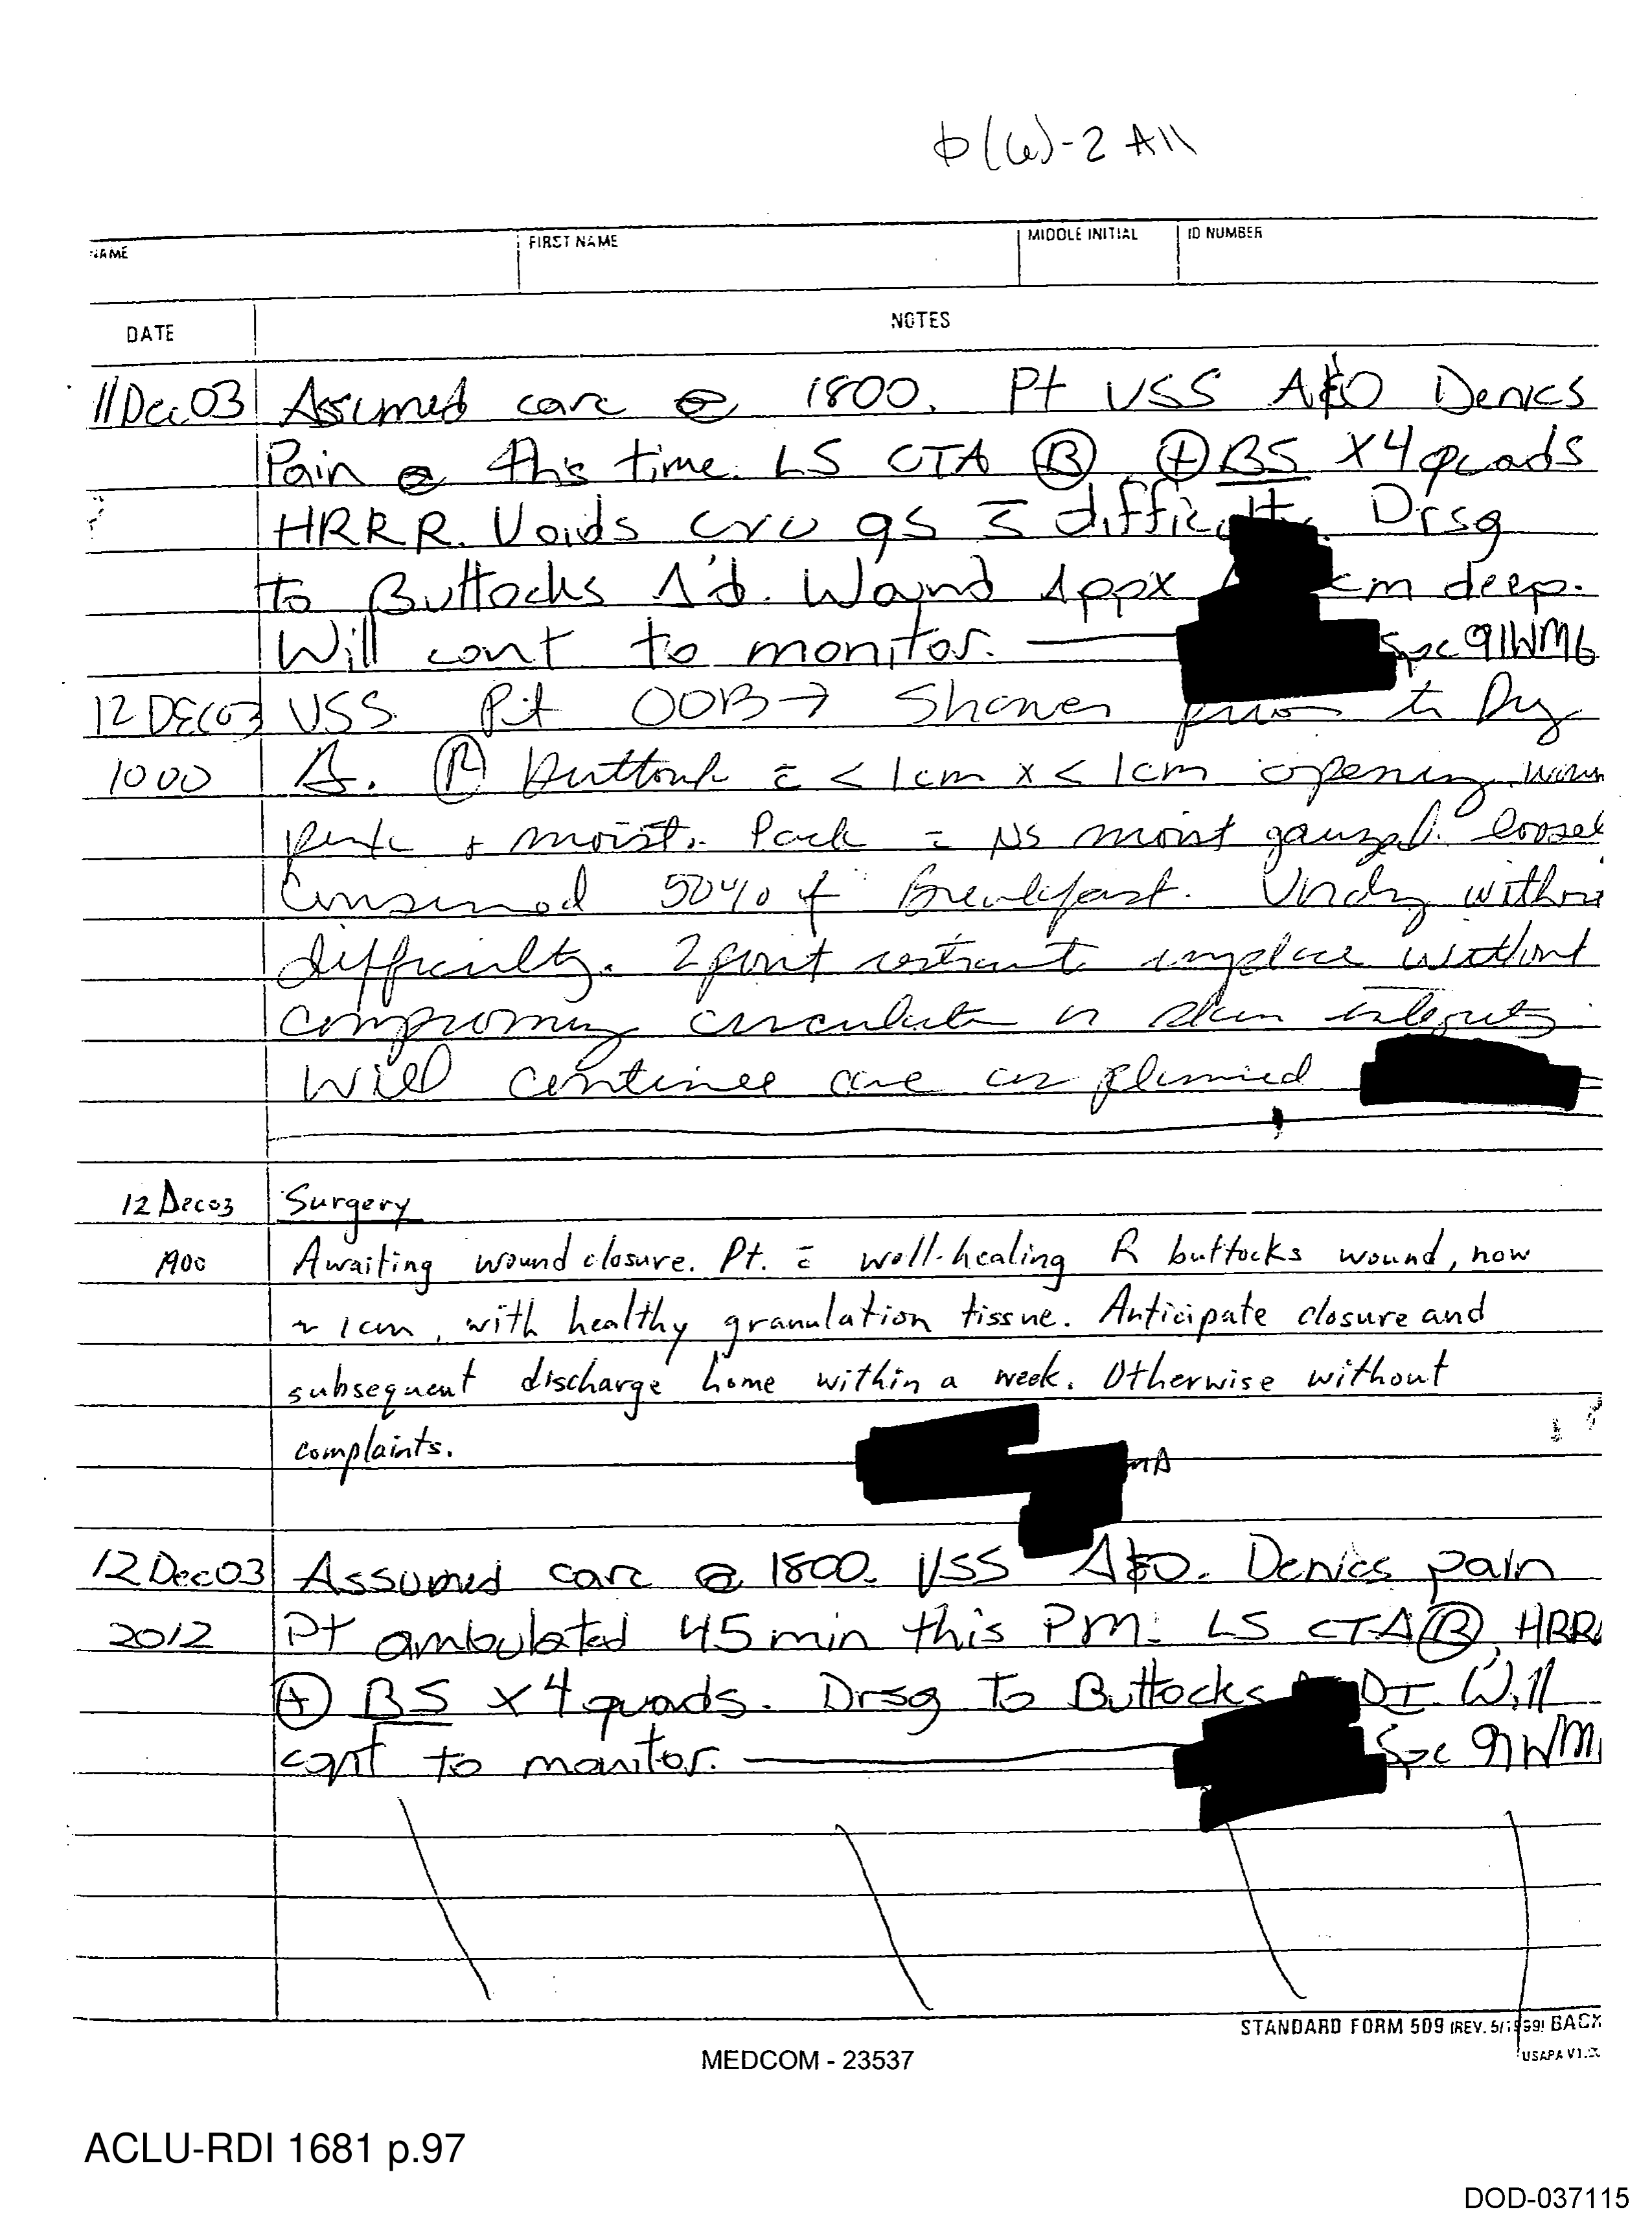 b(6)-2 All
NAME FIRST NAME MIDDLE INITIAL ID NUMBER
DATE NOTES
11Dec03 Assumed care @ 1800. Pt VSS A&O Denies
Pain @ this time. LS CTA Ⓑ ⊕ BS x4 quads
HRRR. Voids qs s̄ difficulty. Drsg
to Buttocks Δ'd. Wound Appx cm deep.
Will cont to monitor. Spc 91WM6
12DEC03 VSS Pt OOB→ Shower prior to Drg
1000 Δ. Ⓡ buttock c̄ <1cm x <1cm opening,
pink + moist. Pack c̄ NS moist gauze
Consumed 50% of Breakfast. Voiding
difficulty. 2 point restraints inplace without
compromising circulation or skin integrity.
Will continue care as planned
12Dec03 Surgery
1900 Awaiting wound closure. Pt. c̄ well-healing R buttocks wound, now
~ 1cm, with healthy granulation tissue. Anticipate closure and
subsequent discharge home within a week. Otherwise without
complaints.
12Dec03 Assumed care @ 1800. VSS A&O. Denies pain
2012 Pt ambulated 45min this PM. LS CTA Ⓑ, HRR
⊕ BS x4 quads. Drsg to Buttocks DI. Will
cont to monitor. Spc 91WM
STANDARD FORM 509 (REV. 5/1999) BACK
USAPA V1.
MEDCOM - 23537
ACLU-RDI 1681 p.97
DOD-037115